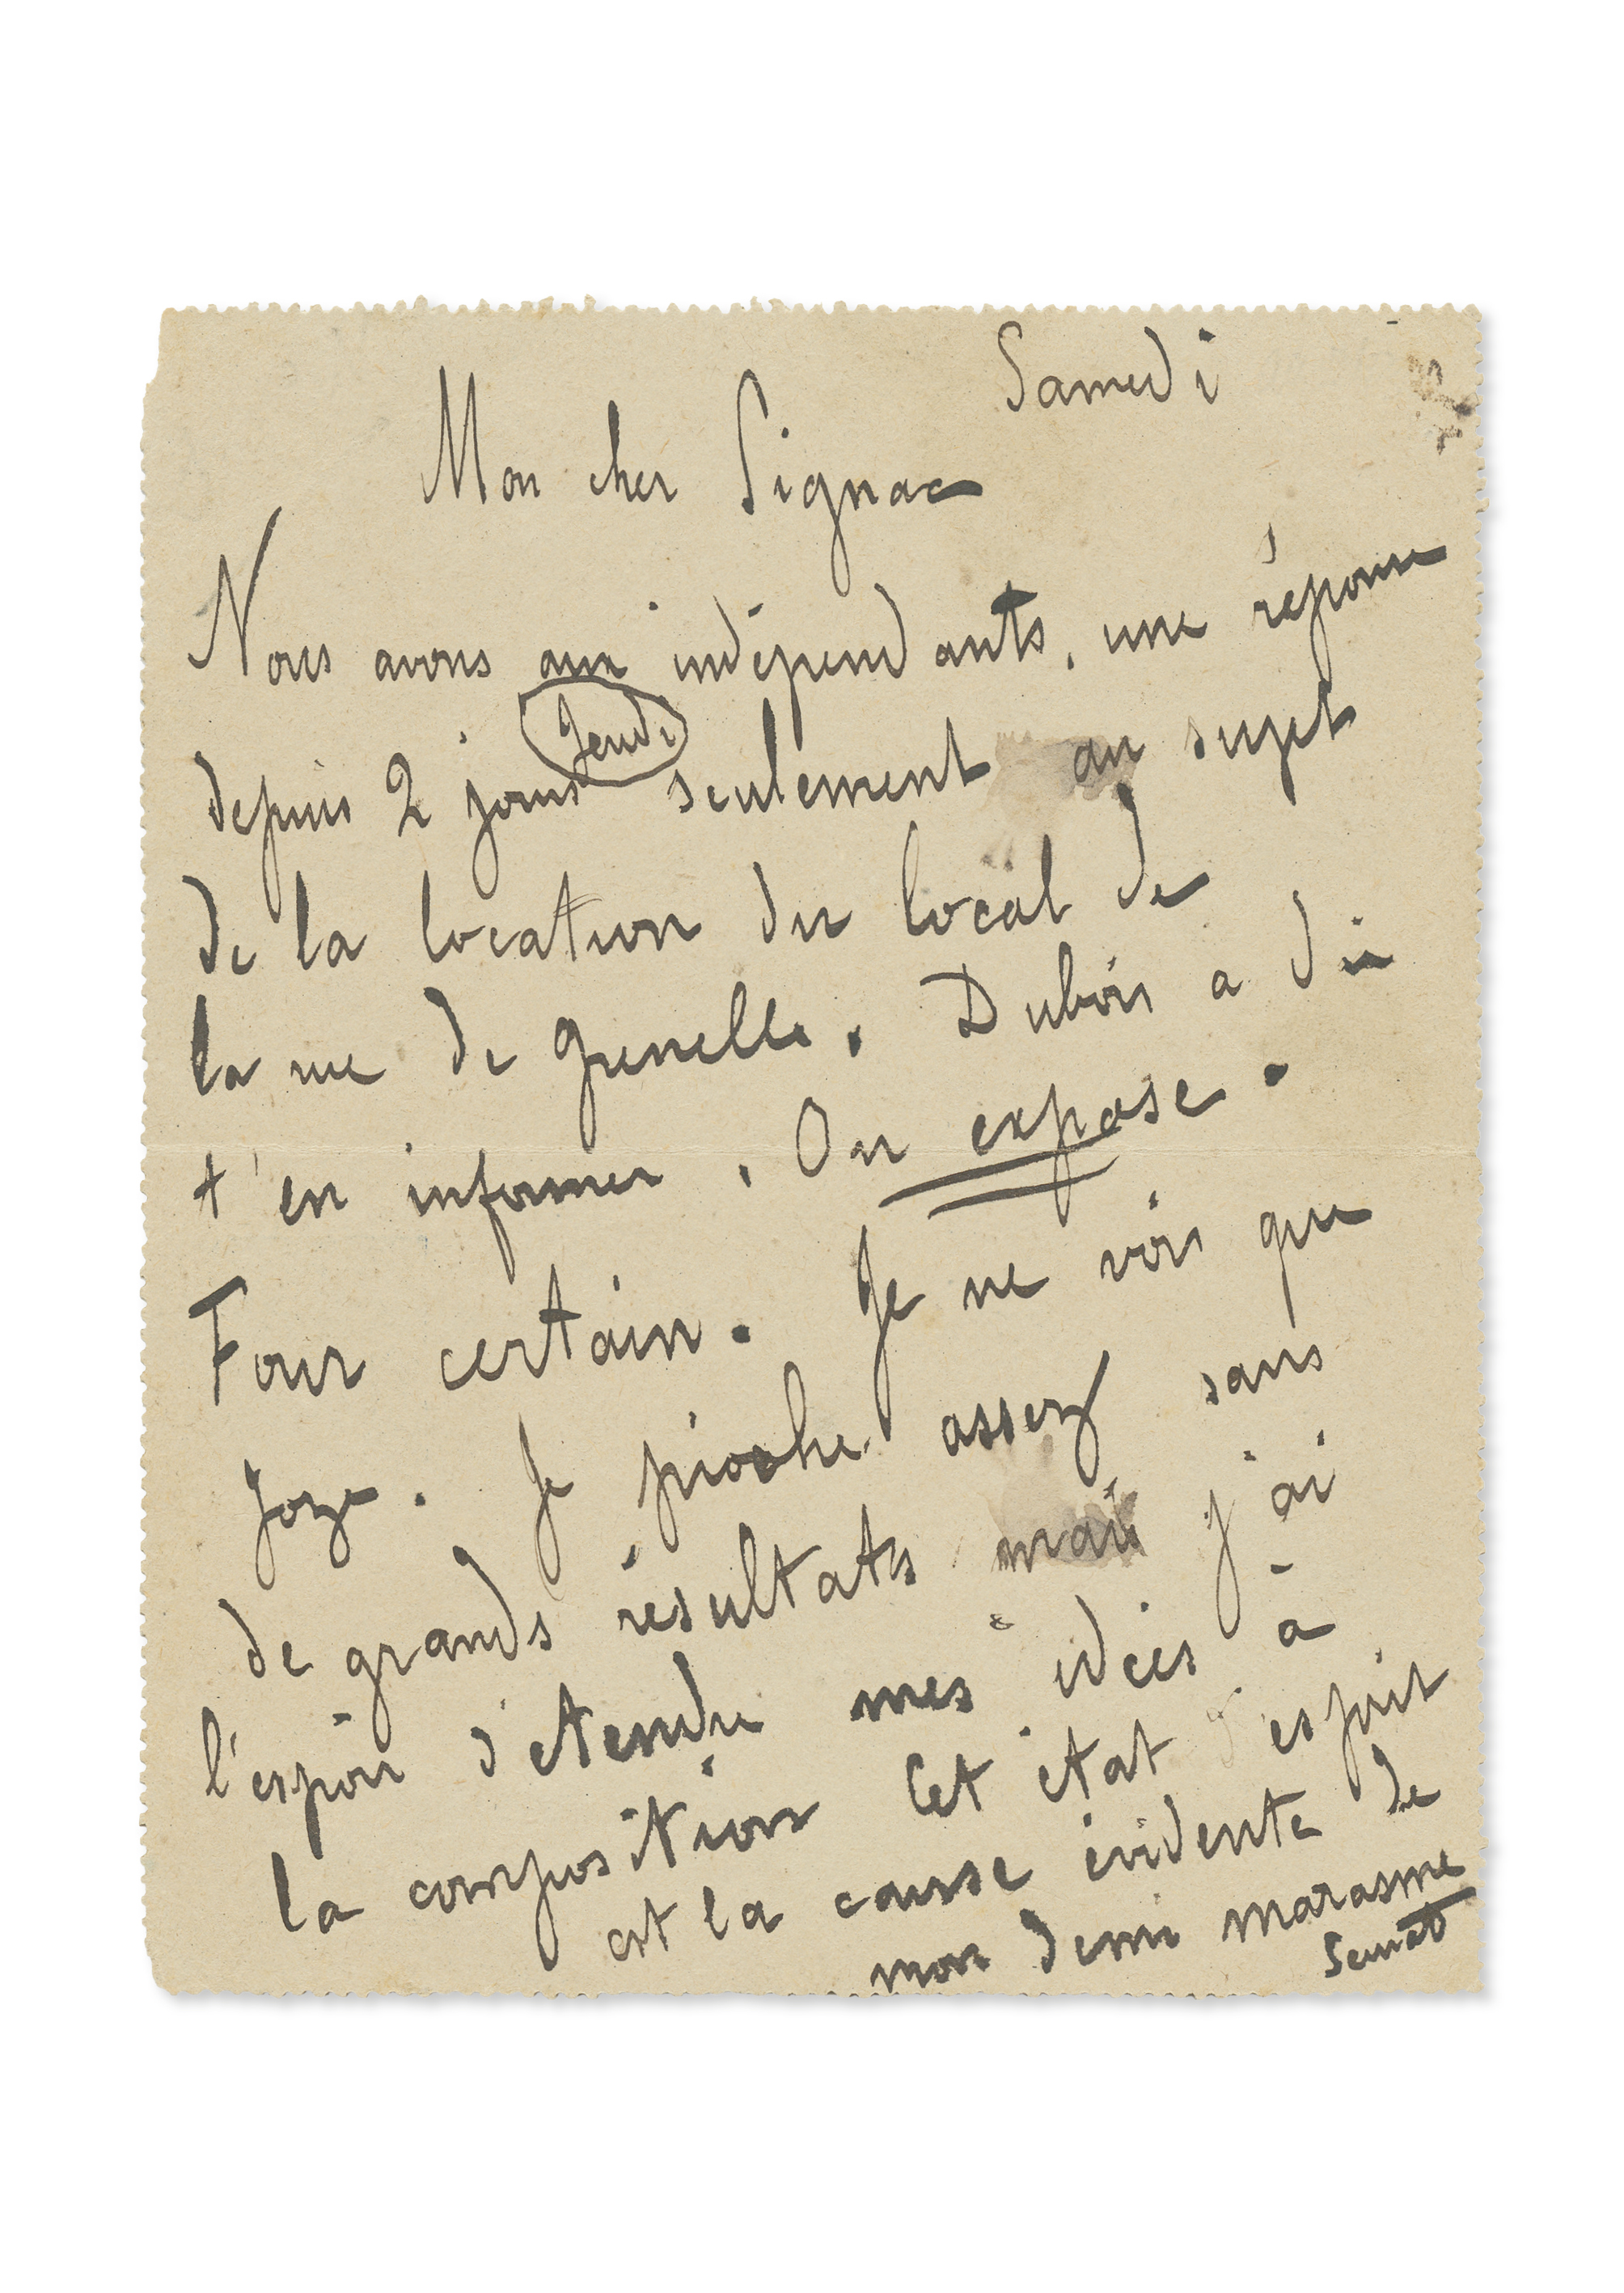 Samedi
Mon cher Signac
Nous avons aux indépendants, une réponse
Jeudi
depuis 2 jours seulement au sujet
de la location du local de
la rue de Grenelle. Dubois a dû
t'en informer. On expose.
Four certain. Je ne vois que
Joze. Je pioche assez sans
de grands résultats mais j'ai
l'espoir d'étendre mes idées à
la composition Cet état d'esprit
est la cause évidente de
mon demi marasme
Seurat